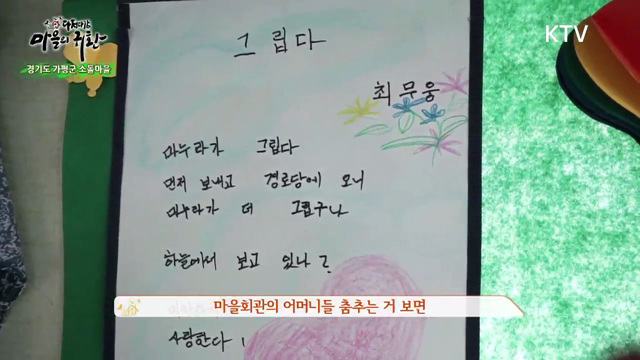 마을의 귀환
경기도 가평군 소돌마을
KTV
그립다
최무웅
마누라가 그립다
먼저 보내고 경로당에 오니
마누라가 더 그립구나
하늘에서 보고 있나?
마을회관의 어머니들 춤추는 거 보면
사랑한다